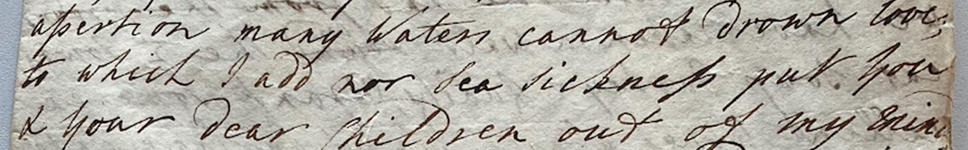 assertion many Waters cannot drown love;
to which I add nor Sea sickness put you
& your dear Children out of my mind